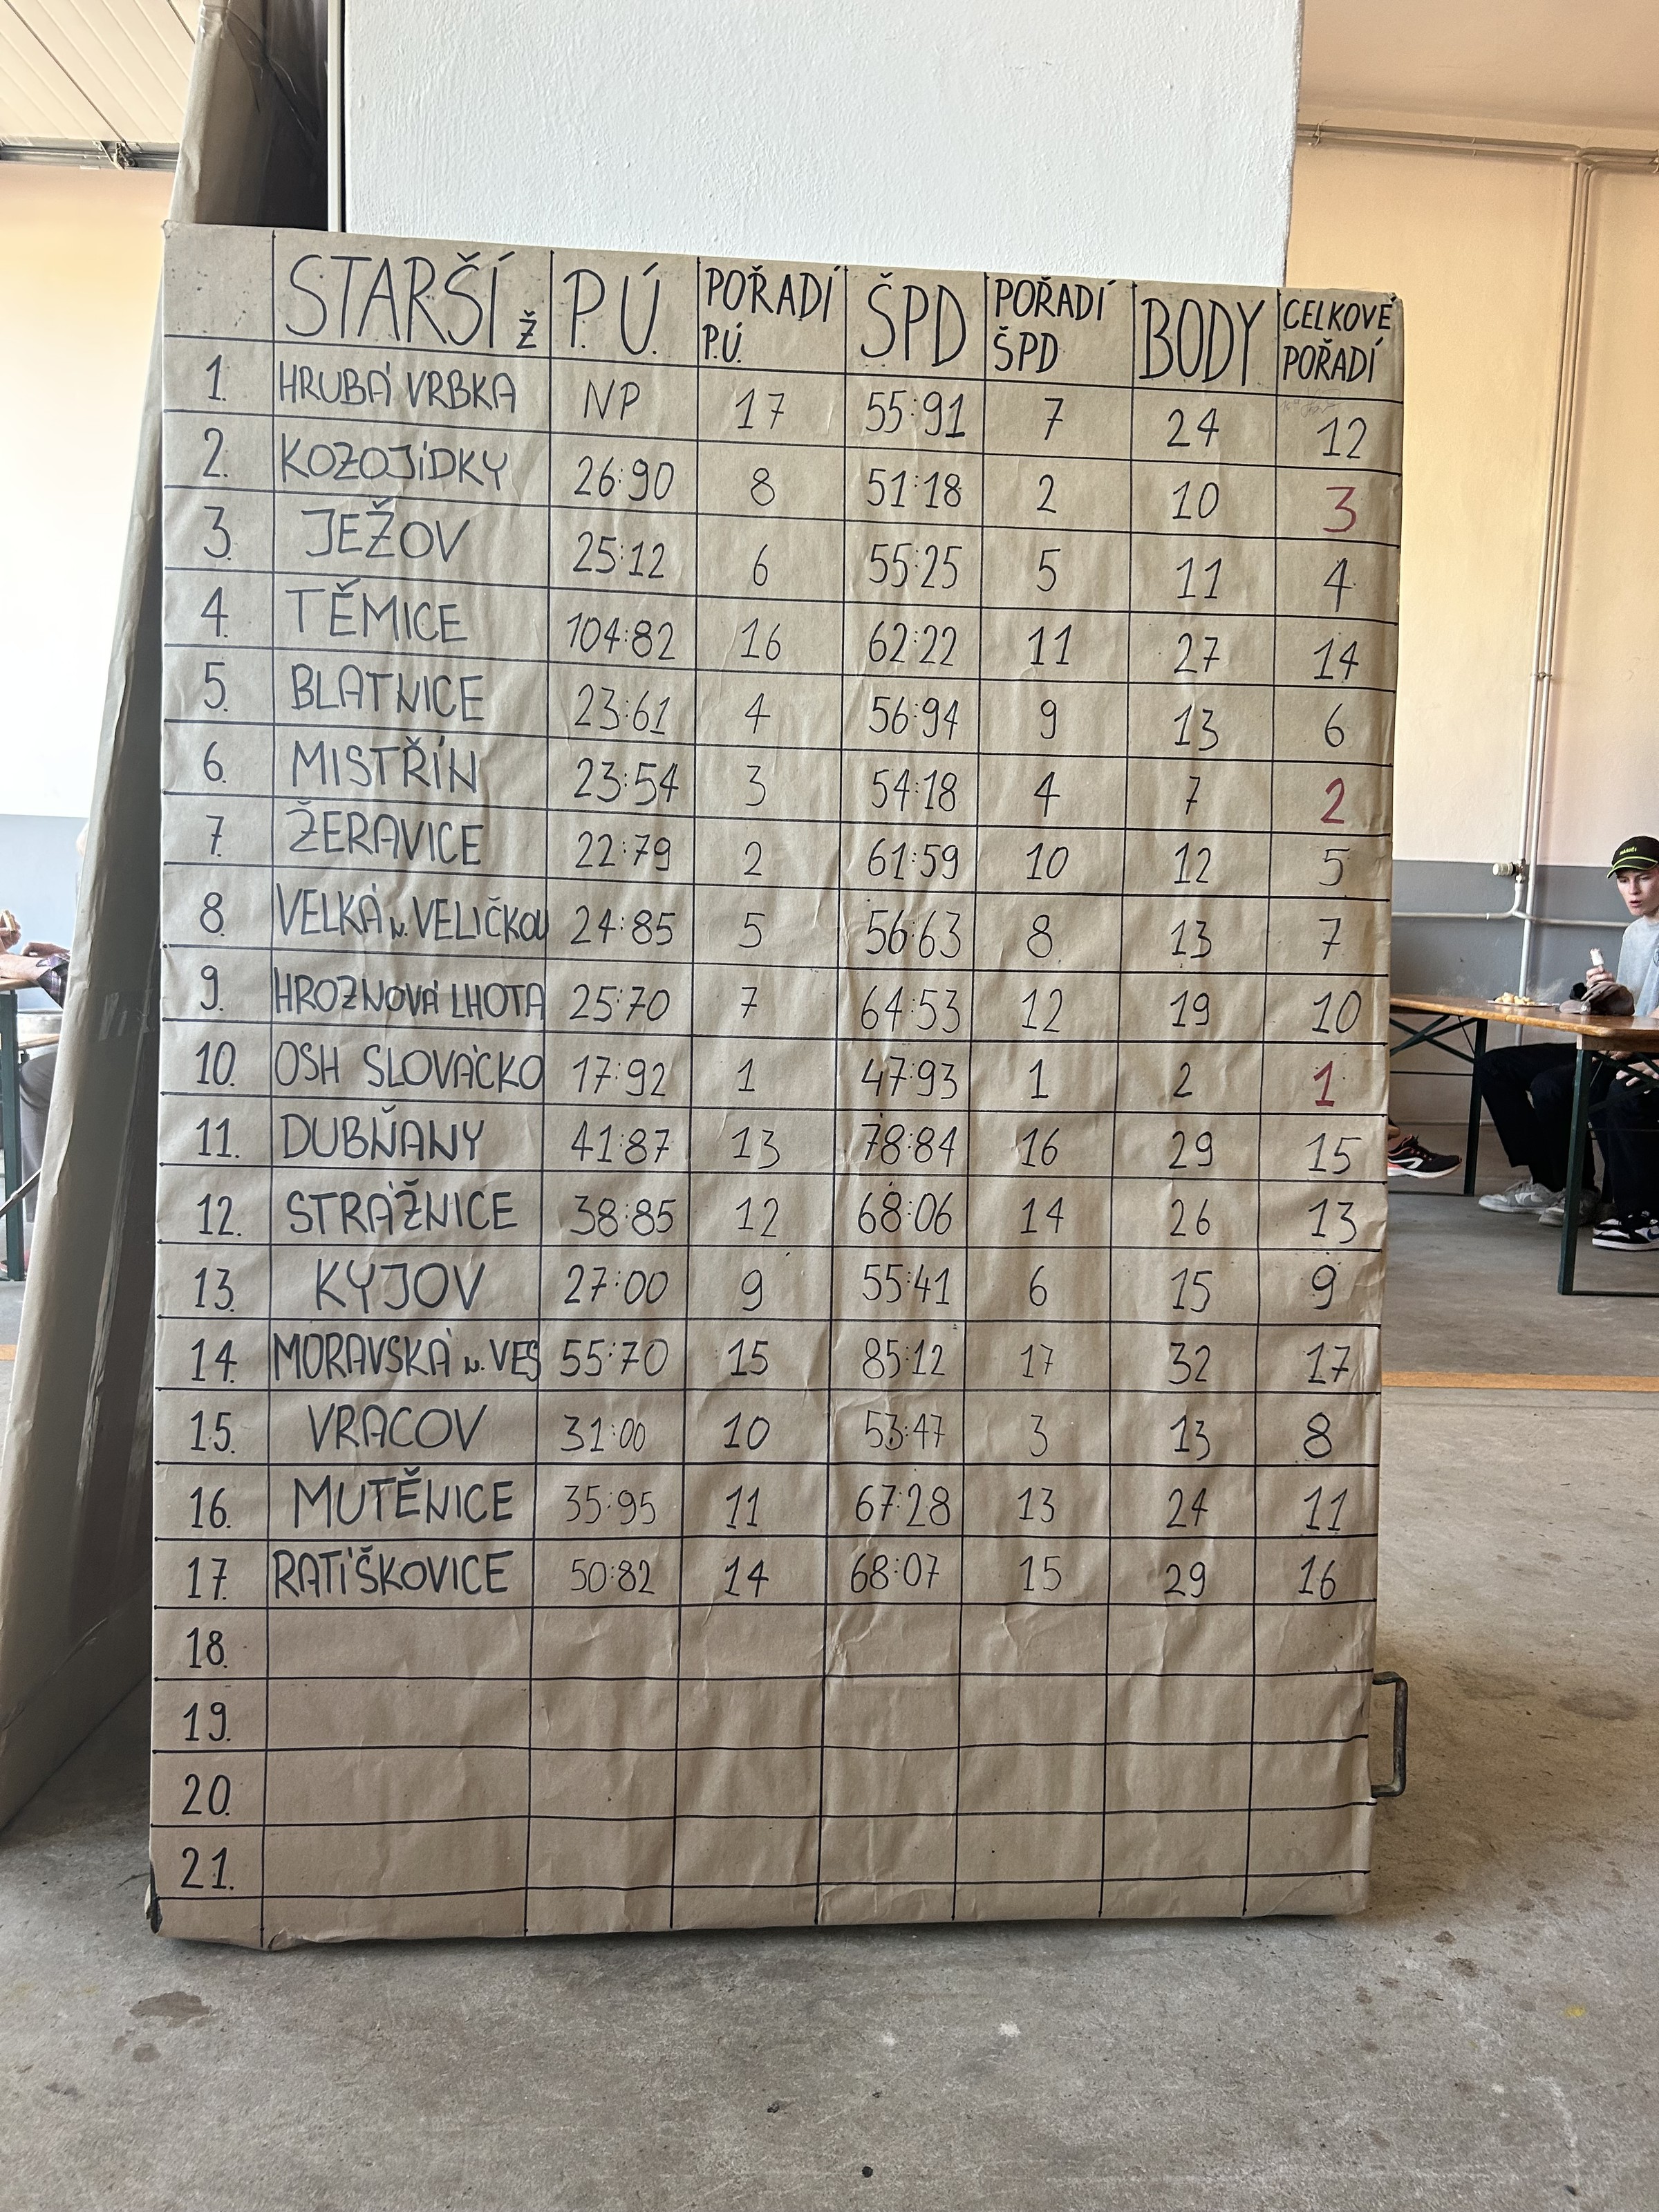 STARŠÍ Ž P.Ú. POŘADÍ P.Ú. ŠPD POŘADÍ ŠPD BODY CELKOVÉ POŘADÍ
1. HRUBÁ VRBKA NP 17 55:91 7 24 12
2. KOZOJÍDKY 26:90 8 51:18 2 10 3
3. JEŽOV 25:12 6 55:25 5 11 4
4. TĚMICE 104:82 16 62:22 11 27 14
5. BLATNICE 23:61 4 56:94 9 13 6
6. MISTŘÍN 23:54 3 54:18 4 7 2
7. ŽERAVICE 22:79 2 61:59 10 12 5
8. VELKÁ N. VELIČKOU 24:85 5 56:63 8 13 7
9. HROZNOVÁ LHOTA 25:70 7 64:53 12 19 10
10. OSH SLOVÁCKO 17:92 1 47:93 1 2 1
11. DUBŇANY 41:87 13 78:84 16 29 15
12. STRÁŽNICE 38:85 12 68:06 14 26 13
13. KYJOV 27:00 9 55:41 6 15 9
14. MORAVSKÁ N. VES 55:70 15 85:12 17 32 17
15. VRACOV 31:00 10 53:47 3 13 8
16. MUTĚNICE 35:95 11 67:28 13 24 11
17. RATÍŠKOVICE 50:82 14 68:07 15 29 16
18.
19.
20.
21.